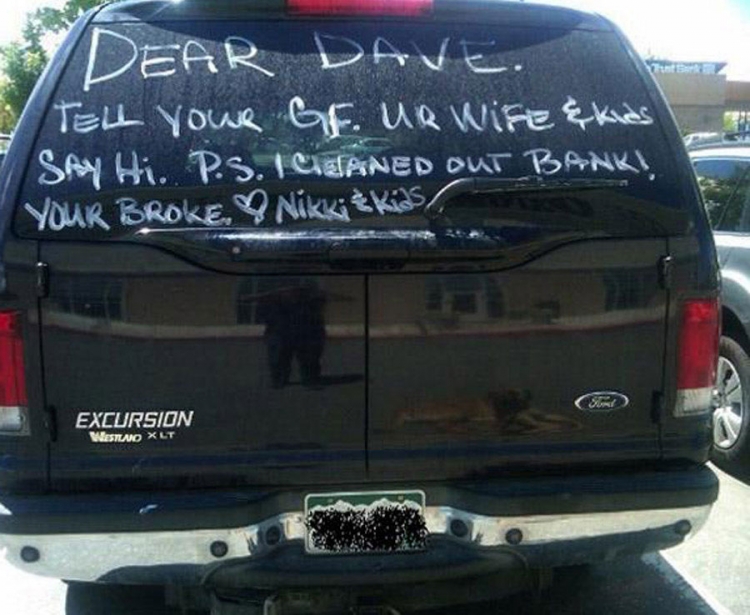 DEAR DAVE.
TELL YOUR GF. UR WIFE & KIDS
SAY Hi. P.S. I CLEANED OUT BANK!
YOUR BROKE. ♡ Nikki & KiDS
EXCURSION
WESTLAND XLT
Ford